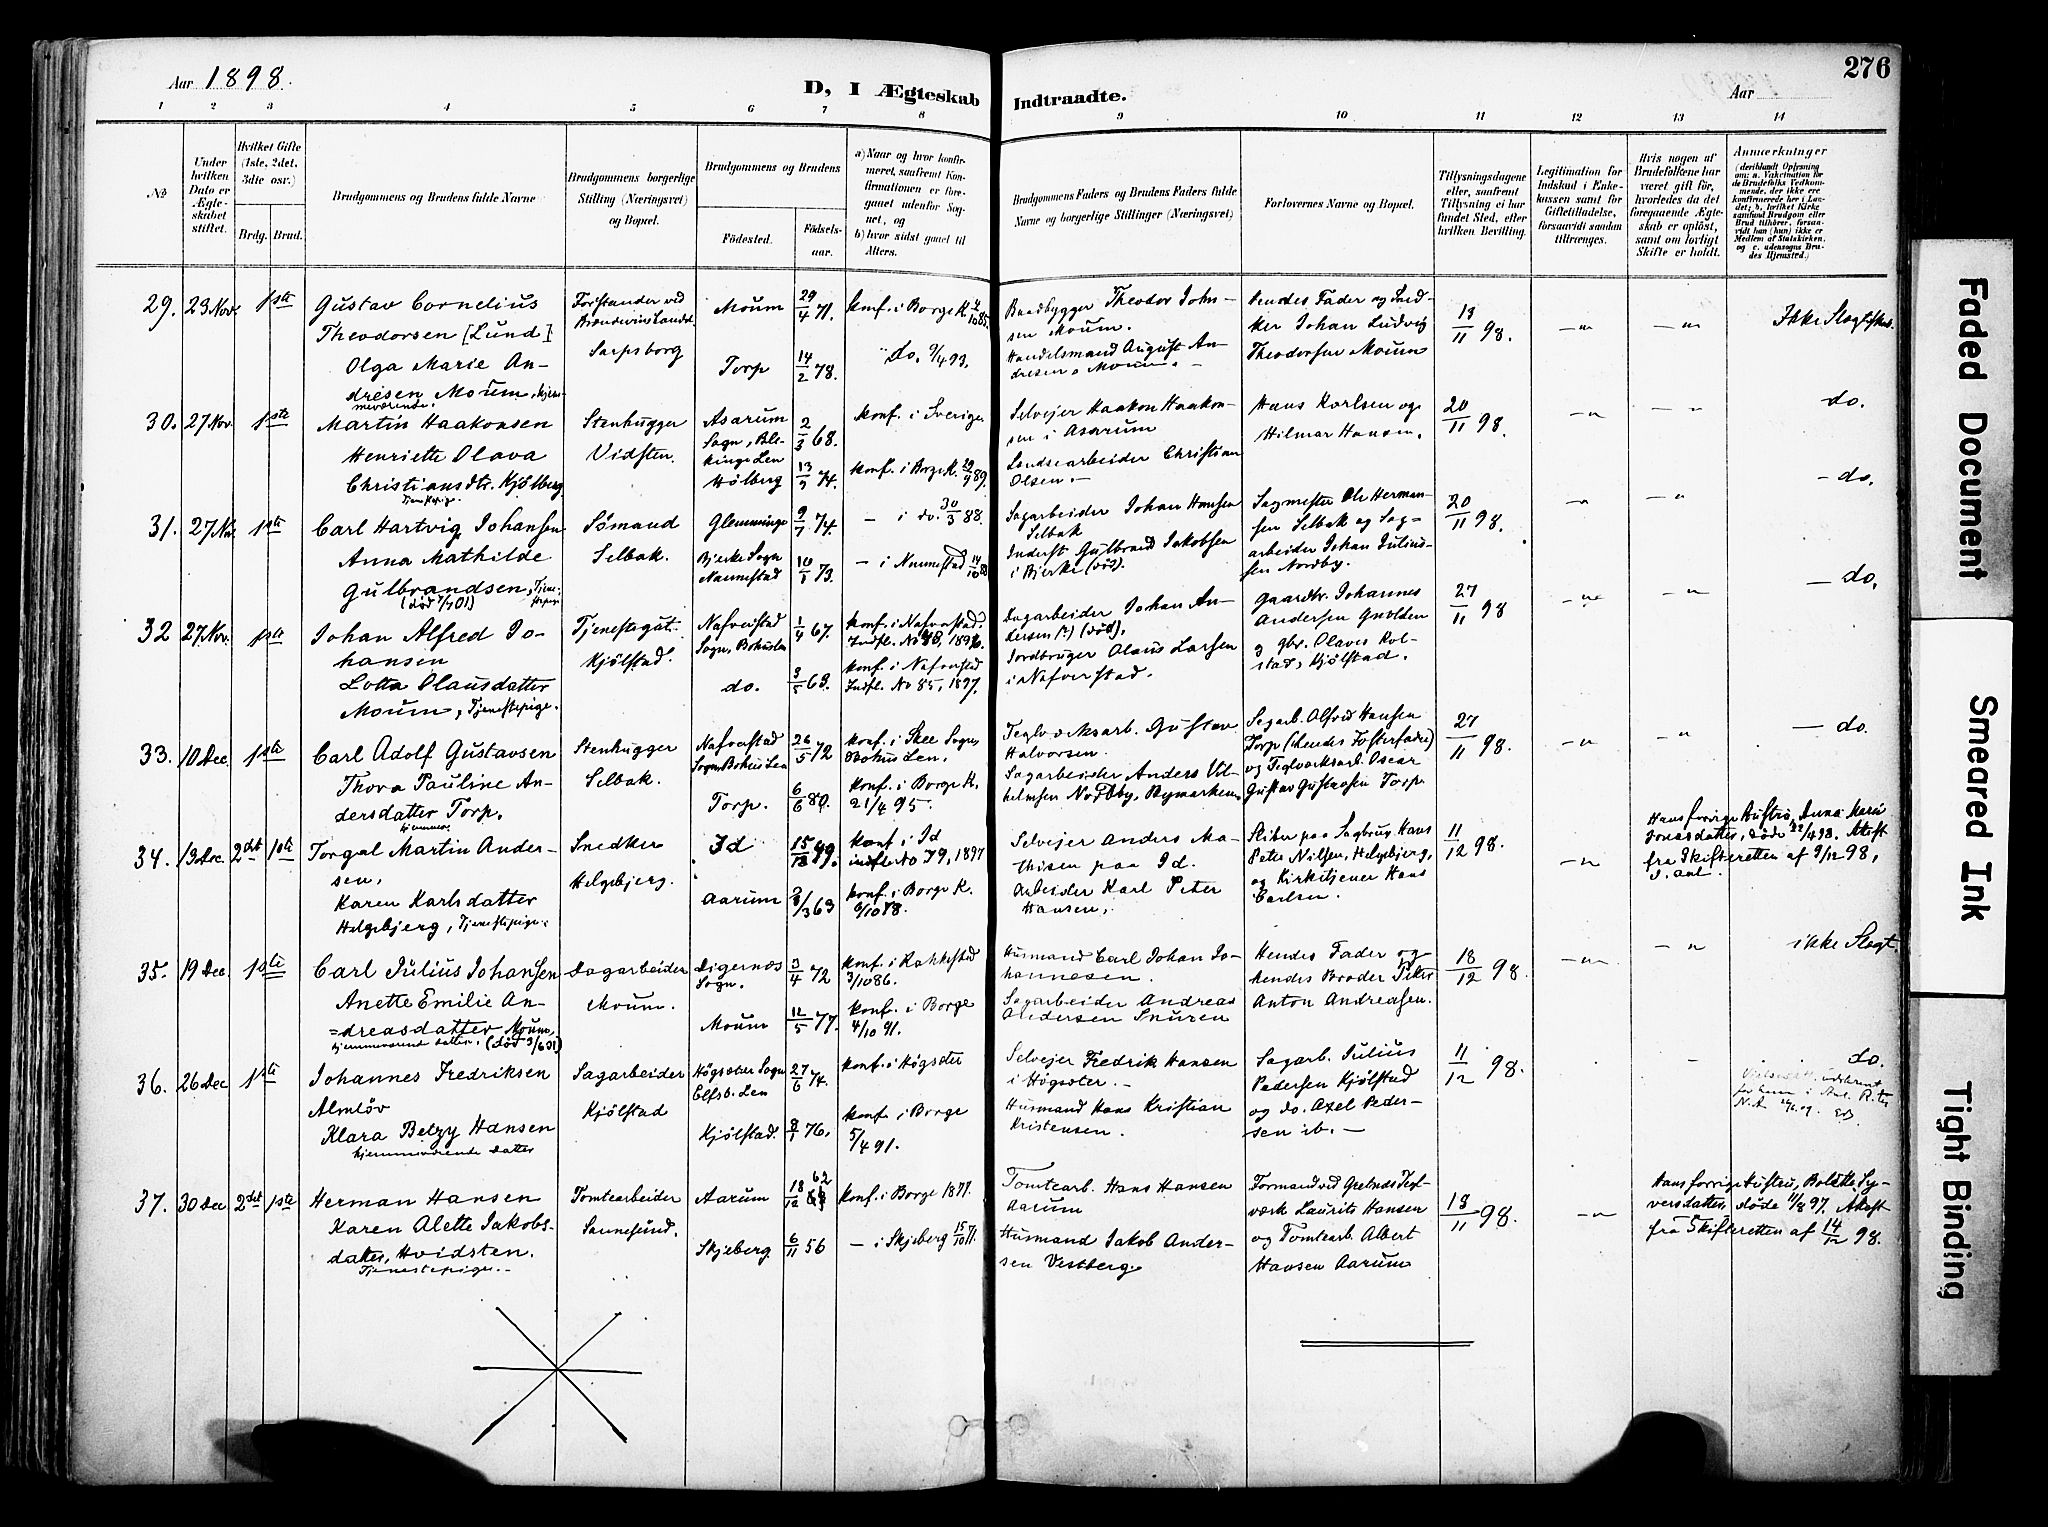 Aar 1898.
D, I Ægteskab Indtraadte.
Aar
276
1 2 3 4 5 6 7 8 9 10 11 12 13 14
No
Under hvilken Dato er Ægteskabet stiftet.
Hvilket Gifte (1ste, 2det, 3die osv.)
Brdg. Brud.
Brudgommens og Brudens fulde Navne
Brudgommens borgerlige Stilling (Næringsvei) og Bopæl.
Brudgommens og Brudens
Fødested.
Fødselsaar.
a) Naar og hvor konfirmeret, saafremt Konfirmationen er foregaaet udenfor Sognet, og
b) hvor sidst gaaet til Alters.
Brudgommens Faders og Brudens Faders fulde Navne og borgerlige Stillinger (Næringsvei)
Forlovernes Navne og Bopæl.
Tillysningsdagene eller, saafremt Tillysning ei har fundet Sted, efter hvilken Bevilling.
Legitimation for Indskud i Enkekassen samt for Giftetilladelse, forsaavidt saadan tiltrænges.
Hvis nogen af Brudefolkene har været gift før, hvorledes da det foregaaende Ægteskab er opløst, samt om lovligt Skifte er holdt.
Anmærkninger (deriblandt Oplysning om: a. Vakcination for de Brudefolks Vedkommende, der ikke ere konfirmerede her i Landet; b. hvilket Kirkesamfund Brudgom eller Brud tilhører, forsaavidt han (hun) ikke er Medlem af Statskirken, og c. udensogns Brudes Hjemsted.)
29. 23 Nov. 1ste
Gustav Cornelius
Theodorsen [Lund]
Olga Marie An-
dresen Moum, hjem-
meværende.
Forstander ved
Sarpsborg
Moum 29/4 71.
Torp 14/2 78.
konf. i Borge K.
do. 9/4 93.
Baadbygger Theodor John-
sen Moum.
Handelsmand August An-
dresen, Moum.
Hendes Fader og Sned-
ker Johan Ludvig
Theodorsen Moum
13/11 98.
Ikke Slægtskab.
30. 27 Nov. 1ste
Martin Haakonsen
Henriette Olava
Christiansdtr. Kjölberg
Tjenstepige.
Stenhugger
Vidsten.
Asarum
Sogn, Ble-
kinge Len 2/3 68.
Hølberg 13/3 74.
konf. i Sverige
konf. i Borge K. 29/9 89.
Selvejer Haakon Haakon-
sen i Asarum
Landsearbeider Christian
Olsen.
Hans Karlsen og
Hilmar Hansen.
20/11 98.
do.
31. 27 Nov. 1ste
Carl Hartvig Johansen
Anna Mathilde
Gulbrandsen, Tjene-
stepige
Sømand
Selbak.
Glemminge 9/7 74.
Bjerke Sogn
Nannestad 10/1 73.
— i do. 30/3 88.
— i Nannestad
Sagarbeider Johan Hansen
Selbak
Inderst Gulbrand Jakobsen
i Bjerke (død).
Sagmester Ole Herman-
sen Selbak og Sag-
arbeider Johan Julius-
sen Nordby.
20/11 98.
— do.
32 27 Nov. 1ste
Johan Alfred Jo-
hansen
Lotta Olausdatter
Moum, Tjenestepige.
Tjenestegut.
Kjølstad.
Nafverstad
Sogn, Bohuslen 1/4 67.
do. 3/5 63.
konf. i Nafverstad.
konf. i Nafverstad
Indfl. No 85, 1897.
Sagarbeider Johan An-
dersen (?) (død).
Jordbruger Olaus Larsen
i Nafverstad.
Gaardbr. Johannes
Andersen
og gbr. Olaves Kol-
stad, Kjølstad.
27/11 98
— do.
33. 10 Dec. 1ste
Carl Adolf Gustavsen
Thora Pauline An-
dersdatter Torp.
hjemmev.
Stenhugger
Selbak.
Nafverstad
Sogn Bohus Len 26/5 72
Torp. 6/6 80.
konf. i Skee Sogn,
Bohus Len.
konf. i Borge K.
21/4 95.
Teglværksarb. Gustav
Halvorsen.
Sagarbeider Anders Vil-
helmsen Nordby, Bymarken
Sagarb. Alfred Hansen
Torp (hendes Fosterfader)
og Teglværksarb. Oscar
Gustav Gustavsen Torp
27/11 98.
— do.
34. 13 Dec. 2det 1ste
Torgal Martin Ander-
sen,
Karen Karlsdatter
Helgebjerg, Tjenestepige.
Snedker
Helgebjerg.
Id 15/12 49.
Aarum 3/3 63
konf. i Id
indfl No 79, 1897
konf. i Borge K.
Selvejer Anders Ma-
thisen paa Id.
Arbeider Karl Peter
Hansen.
Sliber paa Sagbrug Hans
Peter Nilsen, Helgebjerg,
og Kirketjener Hans
Carlsen.
11/12 98.
Hans forrige Hustru, Anna Marie
Jonasdatter, døde 22/4 98. Attest
fra Skifteretten af 9/12 98,
35. 19 Dec. 1ste
Carl Julius Johansen
Anette Emilie An-
=dreasdatter Moum,
hjemmeværende datter. (død 3/6 01)
Dagarbeider
Moum.
Digernæs
Sogn. 3/4 72
Moum 12/5 77.
konf. i Rakkestad
3/10 86.
konf. i Borge
4/10 91.
Husmand Carl Johan Jo-
hannesen.
Sagarbeider Andreas
Andersen Snuren
Hendes Fader og
hendes Broder Peter
Anton Andreasen.
18/12 98.
ikke Slægt.
36. 26 Dec 1ste
Johannes Fredriksen
Almløv
Klara Betzy Hansen
hjemmeværende datter
Sagarbeider
Kjølstad
Högsäter Sogn
Elfsb. Len 27/6 74.
Kjølstad. 8/1 76.
konf. i Högsäter
konf. i Borge
5/4 91.
Selvejer Fredrik Hansen
i Högsäter.
Husmand Hans Kristian
Kristensen.
Sagarb. Julius
Pedersen Kjølstad
og do. Axel Peder-
sen ib.
11/12 98.
do.
37. 30 Dec 2det 1ste
Herman Hansen
Karen Alette Jakobs-
datter, Hvidsten.
Tjenestepige.
Tomtearbeider
Sannesund.
Aarum 18/12 62
Skjeberg 6/11 56
konf. i Borge 1877.
— i Skjeberg 15/10 71.
Tomtearb. Hans Hansen
Aarum
Husmand Jakob Ander-
sen Vestberg.
Formand ved Tegl-
værk Laurits Hansen
og Tomtearb. Albert
Hansen Aarum
13/11 98.
Hans forrige Hustru, Bolette Sy-
versdatter, døde 11/8 97. Attest
fra Skifteretten af 14/12 98.
Faded Document
Smeared Ink
Tight Binding